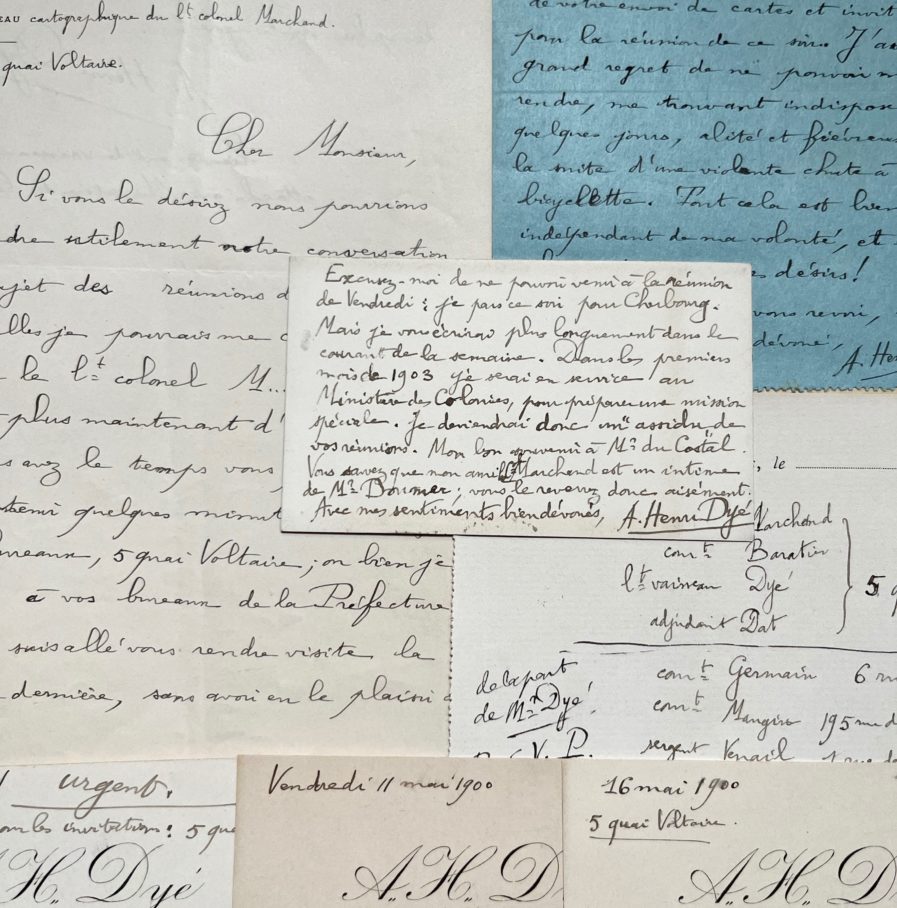 EAU cartographique du lt colonel Marchand.
quai Voltaire.
Cher Monsieur,
Si vous le désirez nous pourrions
dre utilement notre conversation
ujet des réunions d
lles je pourrais me
le lt colonel M...
plus maintenant d'
s avez le temps vous
quelques minut
bureaux, 5 quai Voltaire; ou bien je
à vos bureaux de la Préfecture
suis allé vous rendre visite la
dernière, sans avoir eu le plaisir
de votre envoi de cartes et invit
pour la réunion de ce soir. J'ai
grand regret de ne pouvoir m
rendre, me trouvant indisposé
quelques jours, alité et fiévreux
la suite d'une violente chute à
bicyclette. Tout cela est bien
indépendant de ma volonté, et
désirs!
vous revoir,
dévoué,
A. Hen
Excusez-moi de ne pouvoir venir à la réunion
de Vendredi : je pars ce soir pour Cherbourg.
Mais je vous écrirai plus longuement dans le
courant de la semaine. Dans les premiers
mois de 1903 je serai en service au
Ministère des Colonies, pour préparer une mission
spéciale. Je deviendrai donc un assidu de
vos réunions. Mon bon souvenir à Mr du Costal.
Vous savez que mon ami Marchand est un intime
de Mr Doumer; vous le reverrez donc aisément.
Avec mes sentiments bien dévoués, A. Henri Dyé
, le
Marchand
comt Baratier
lt vaisseau Dyé
adjudant Dat
5 q
de la part
de Mr Dyé!
V. P.
comt Germain 6 ru
comt Mangin 195 rue d
sergent Venail
urgent.
our les invitations: 5 qua
A. H. Dyé
Vendredi 11 mai 1900
A. H. D
16 mai 1900
5 quai Voltaire.
A. H. D